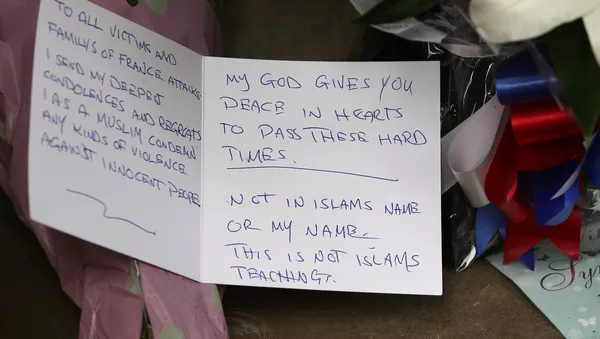 TO ALL VICTIMS AND
FAMILYS OF FRANCE ATTACKS
I SEND MY DEEPEST
CONDOLENCES AND REGREATS
I AS A MUSLIM CONDEMN
ANY KINDS OF VIOLENCE
AGAINST INNOCENT PEOPLE
MY GOD GIVES YOU
PEACE IN HEARTS
TO PASS THESE HARD
TIMES.
NOT IN ISLAMS NAME
OR MY NAME.
THIS IS NOT ISLAMS
TEACHINGS.